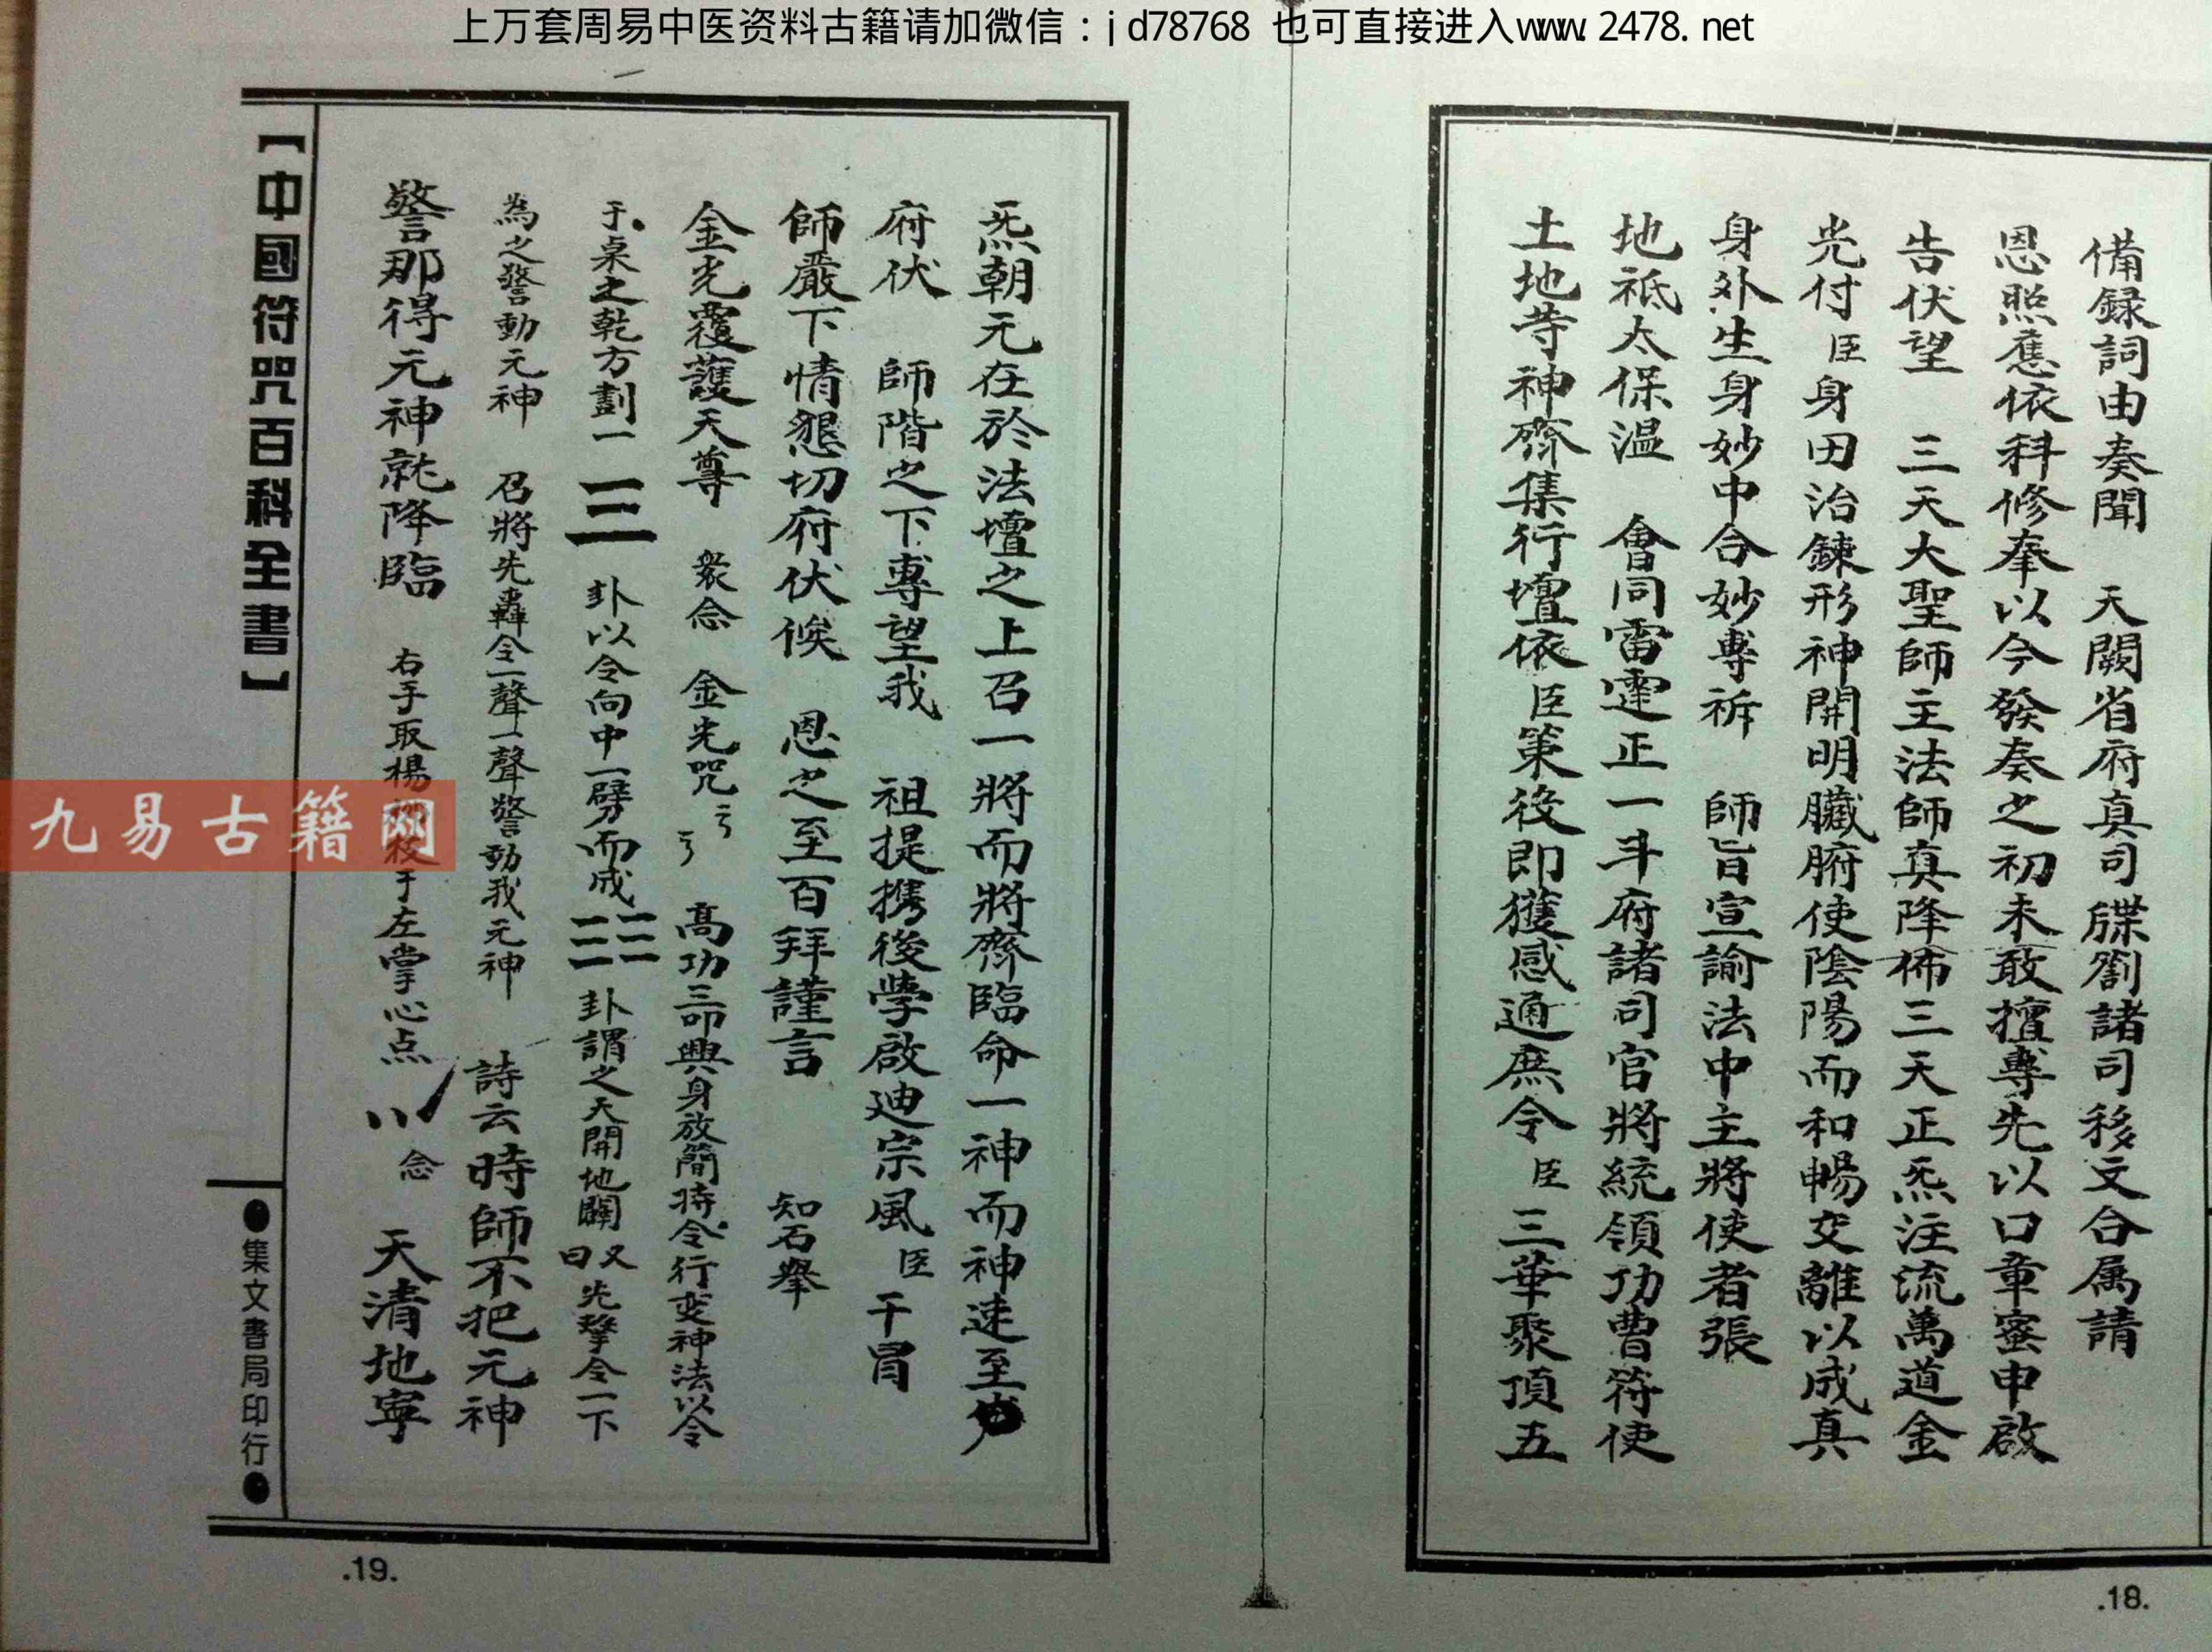 上万套周易中医资料古籍请加微信：jd78768 也可直接进入www.2478.net
備録詞由奏聞 天闕省府真司牒劄諸司移文合属請
恩照應依科修奉以今發奏之初未敢擅專先以口章蜜申啟
告伏望 三天大聖師主法師真降佈三天正炁注流萬道金
光付臣身田治鍊形神開明臟腑使陰陽而和暢交離以成真
身外生身妙中合妙專祈 師旨宣諭法中主將使者張
地祇太保温 會同雷霆正一斗府諸司官將統領功曹符使
土地䓁神齊集行壇依臣策役即獲感通庶令臣三華聚頂五
.18.
炁朝元在於法壇之上召一將而將齊臨命一神而神速至
府伏 師階之下專望我 祖提携後學啟迪宗風臣干冒
師嚴下情懇切府伏候 恩之至百拜謹言 知石舉
金光覆護天尊 衆念 金光咒 高功三叩興身放簡持令行变神法以令
于桌之乾方劃一 ☰ 卦以令向中一劈而成 ☷ 卦謂之天開地闢 又曰 先擊令一下
為之警動元神 召將先轟令一聲一聲警動我元神 詩云時師不把元神
警那得元神就降臨 右手取楊柳枝于左掌心点 念 天清地寧
【中國符咒百科全書】
●集文書局印行●
.19.
九易古籍网